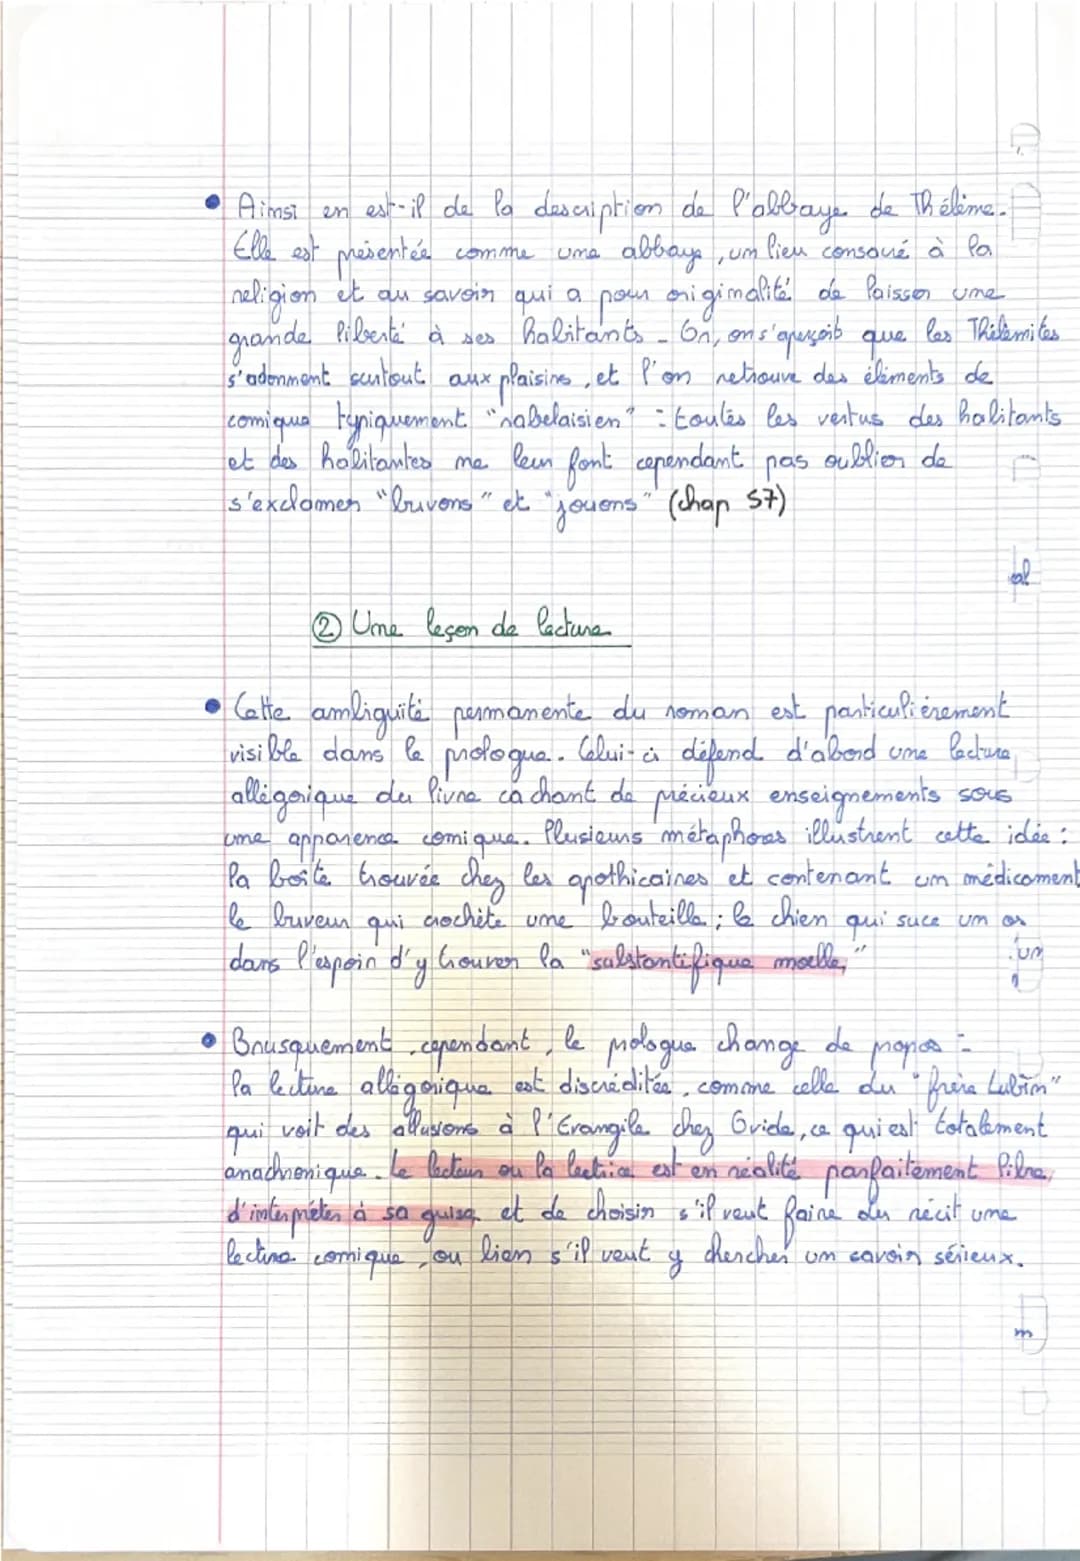 Ainsi en est-il de la description de l'abbaye de Thélème.
Elle est présentée comme une abbaye, un lieu consacré à la
religion et au savoir qui a pour originalité de laisser une
grande liberté à ses habitants. Or, on s'aperçoit que les Thélémites
s'adonnent surtout aux plaisirs, et l'on retrouve des éléments de
comique typiquement "rabelaisien" : toutes les vertus des habitants
et des habitantes ne leur font cependant pas oublier de
s'exclamer "buvons" et "jouons" (chap 57)
② Une leçon de lecture
Cette ambiguïté permanente du roman est particulièrement
visible dans le prologue. Celui-ci défend d'abord une lecture
allégorique du livre cachant de précieux enseignements sous
une apparence comique. Plusieurs métaphores illustrent cette idée :
la boîte trouvée chez les apothicaires et contenant un médicament
le buveur qui crochète une bouteille ; le chien qui suce un os
dans l'espoir d'y trouver la "substantifique moelle,"
Brusquement, cependant, le prologue change de propos :
la lecture allégorique est discréditée, comme celle du "frère Lubin"
qui voit des allusions à l'Evangile chez Ovide, ce qui est totalement
anachronique. Le lecteur ou la lectrice est en réalité parfaitement libre
d'interpréter à sa guise et de choisir s'il veut faire du récit une
lecture comique, ou bien s'il veut y chercher un savoir sérieux.